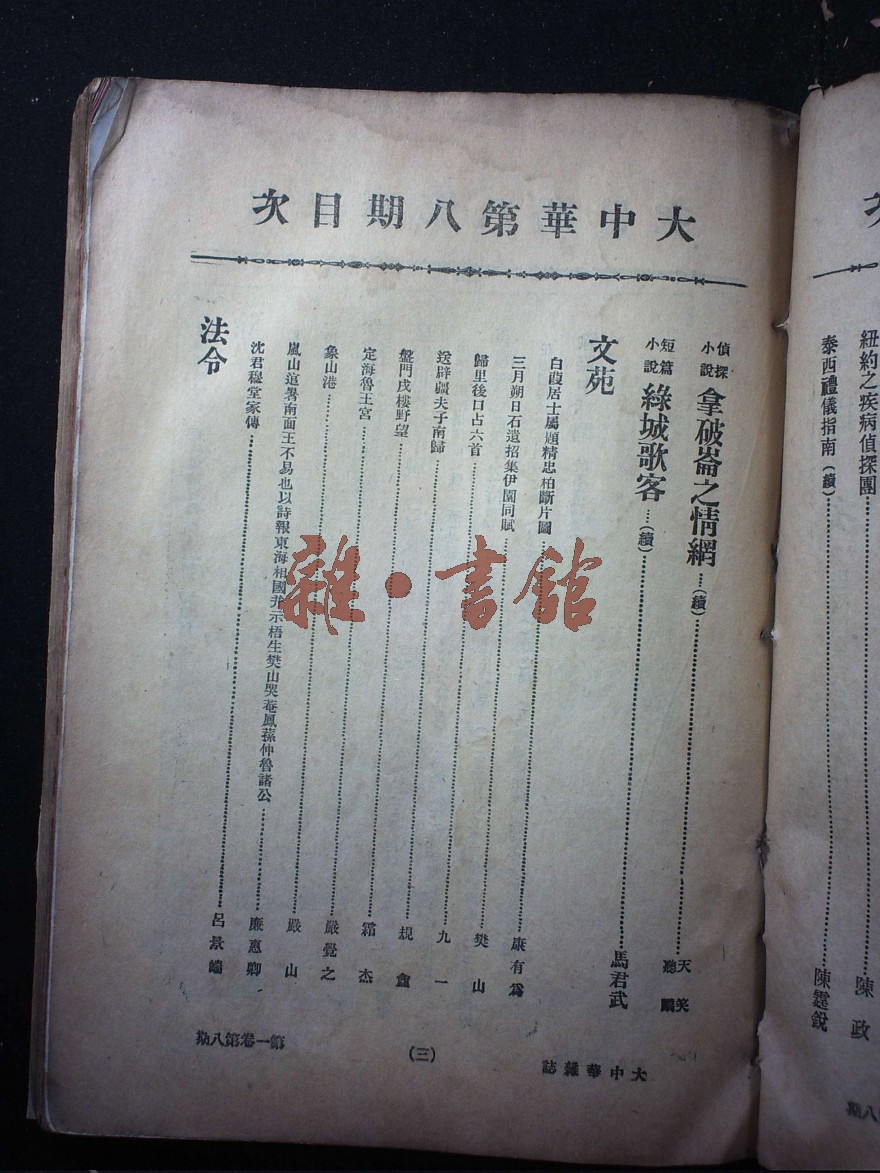 次
紐約之疾病偵探團……陳政
泰西禮儀指南(續)……陳霆銳
大中華第八期目次
偵探小說 拿破崙之情網…(續)……天笑 聽鸝
短篇小說 綠城歌客…(續)……馬君武
文苑
白葭居士屬題精忠柏斷片圖……康有為
三月朔日石遺招集伊園同賦……樊山
歸里後口占六首……九一
送辟疆夫子南歸……規盦
盤門戍樓野望……霜杰
定海魯王宮……嚴覺之
象山港……嚴山
嵐山逭暑南面王不易也以詩報東海相國并示梧生樊山哭菴鳳蓀仲魯諸公……廉惠卿
沈君穆堂家傳……呂景端
法令
大中華雜誌
(三)
第一卷第八期
雜·書館